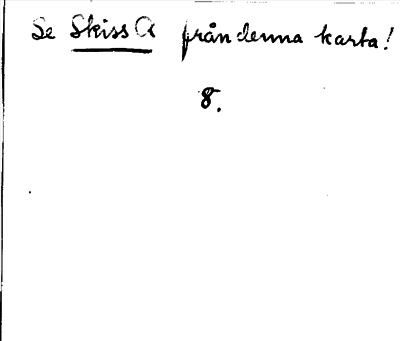 Se Skiss a från denna karta!
8.